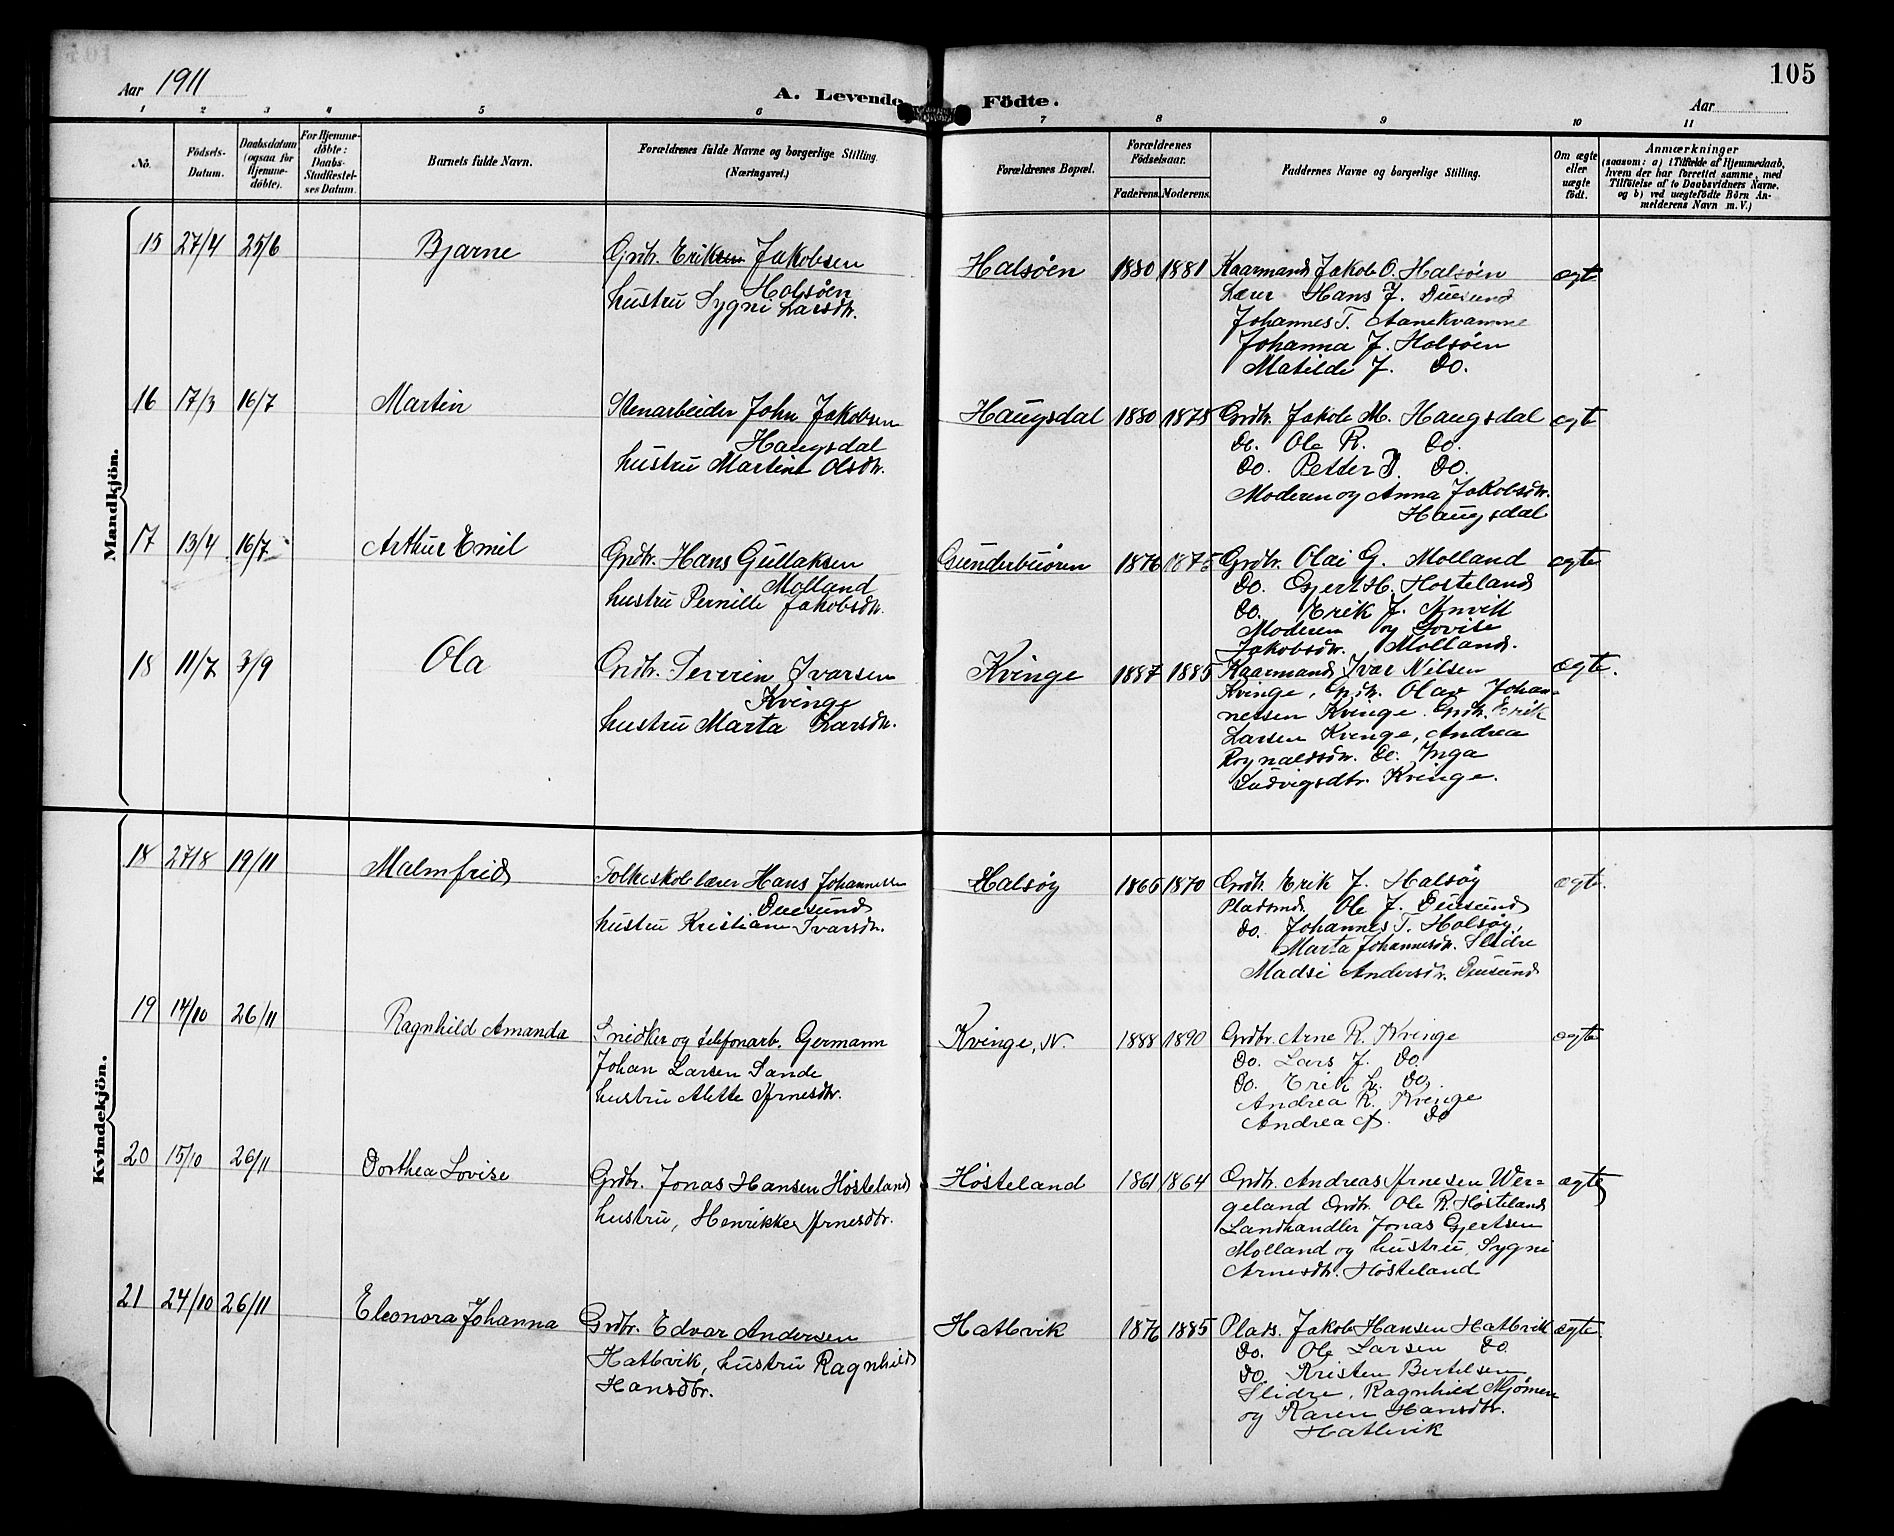 105
Aar 1911
A. Levende Födte.
Aar
1 2 3 4 5 6 7 8 9 10 11
No.
Födsels-Datum.
Daabsdatum (ogsaa for Hjemme-döbte).
For Hjemme-döbte: Daabs-Stadfæstel-ses Datum.
Barnets fulde Navn.
Forældrenes fulde Navne og borgerlige Stilling. (Næringsvei.)
Forældrenes Bopæl.
Forældrenes Födselsaar.
Faderens. Moderens.
Faddernes Navne og borgerlige Stilling.
Om ægte eller uægte födt.
Anmærkninger
(saasom: a) i Tilfælde af Hjemmedaab, hvem der har forrettet samme, med Tilföielse af to Daabsvidners Navne, og b) ved uægtefödte Börn An-melderens Navn m. V.)
Mandkjön.
15 27/4 25/6 Bjarne
Grdbr. Eriksen Jakobsen
Halsöen
hustru Sygni Larsdtr.
Halsöen 1880 1881
Kaarmand Jakob O. Halsöen
Lærer Hans J. Duesund
Johannes T. Aanekvamme
Johanna J. Halsöen
Matilde J. Do.
ægte
16 17/3 16/7 Martin
Stenarbeider John Jakobsen
Haugsdal
hustru Martine Olsdtr.
Haugsdal 1880 1878
Grdbr. Jakob M. Haugsdal
Do. Ole R. Do.
Do. Petter J. Do.
Moderen og Anna Jakobsdtr.
Haugsdal
ægte
17 13/4 16/7 Arthur Emil
Grdbr. Hans Gullaksen
Molland
hustru Pernille Jakobsdtr.
Gunderbuören 1876 1875
Grdbr. Olai G. Molland
Do. Gjert H. Hosteland
Do. Erik J.
Moderen og Lovise
Jakobsdtr. Molland.
ægte
18 11/7 3/9 Ola
Grdbr. Severin Ivarsen
Kvinge
hustru Marta Larsdtr.
Kvinge 1887 1885
Kaarmand Ivar Nilsen
Kvinge, Grdbr. Olav Johan-
nessen Kvinge. Grdbr. Erik
Larsen Kvinge, Andrea
Ragnaldsdtr. Do. Inga
Ludvigsdtr. Kvinge.
ægte.
Kvindekjön.
18 27/8 19/11 Malmfrid
Folkeskolelærer Hans Johannessen
Duesund
hustru Kristiane Ivarsdtr.
Halsöy 1866 1870
Grdbr. Erik J. Halsöy
Pladsmd. Ole J. Duesund
Do. Johannes T. Halsöy,
Marta Johannesdtr. Slidre
Madsi Andersdtr. Duesund
ægte.
19 14/10 26/11 Ragnhild Amanda
Snidker og telefonarb. Germann
Johan Larsen Sande
hustru Alette Arnesdtr.
Kvinge, N. 1888 1890
Grdbr. Arne R. Kvinge
Do. Lars J. Do.
Do. Erik L. Do.
Andrea R. Kvinge
Andrea A. Do
ægte
20 15/10 26/11 Dorthea Lovise
Grdbr. Jonas Hansen Hösteland
hustru, Henrikke Arnesdtr.
Hösteland 1861 1864
Grdbr. Andreas Arnesen Wer-
geland Grdbr. Ole R. Hösteland
Landhandler Jonas Gjertsen
Molland og hustru, Sygni
Arnesdtr. Hösteland
ægte
21 24/10 26/11 Eleonora Johanna
Grdbr. Edvar Andersen
Hatlevik, hustru Ragnhild
Hansdtr.
Hatlevik 1876 1885
Plads. Jakob Hansen Hatlevik
Do. Ole Larsen Do
Do. Kristen Bertelsen
Slidre, Ragnhild Mjömen
og Karen Hansdtr.
Hatlevik
ægte.